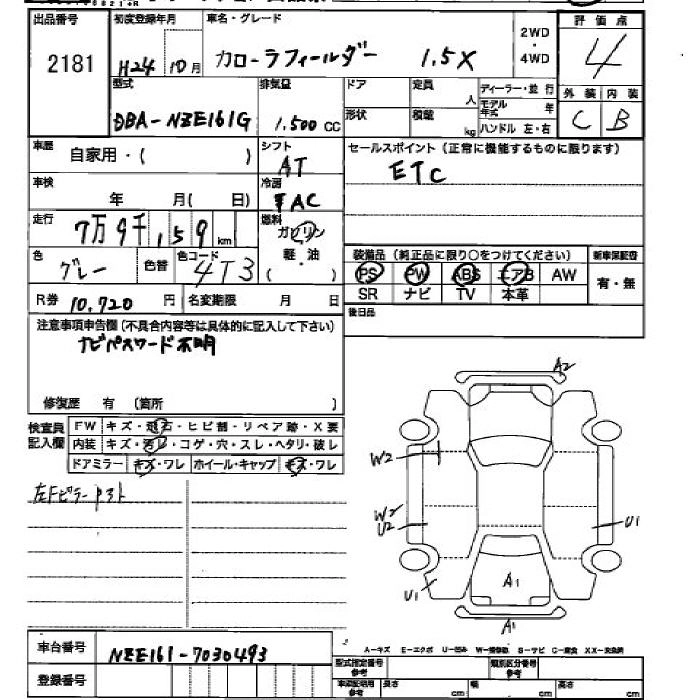 出品番号 初度登録年月 車名・グレード 2WD・4WD 評価点
2181 H24 10月 カローラフィールダー 1.5X 4
型式 排気量 ドア 定員 人 ディーラー・並行 外装 内装
DBA-NZE161G 1,500 CC 形状 積載 kg モデル年式 年 C B
ハンドル 左・右
車歴 自家用・( ) シフト AT セールスポイント(正常に機能するものに限ります)
車検 年 月(日) 冷房 AC ETC
走行 7万9千159km 燃料 ガソリン・軽油 ( )
色 グレー 色替 色コード 4T3 装備品(純正品に限り○をつけてください) 新車保証書
PS PW ABS エアB AW 有・無
R券 10,720円 名変期限 月 日 SR ナビ TV 本革
注意事項申告欄(不具合内容等は具体的に記入して下さい) 後日品
ナビパスワード不明
修復歴 有(箇所 )
検査員記入欄 FW キズ・飛石・ヒビ割・リペア跡・X要
内装 キズ・汚レ・コゲ・穴・スレ・ヘタリ・破レ
ドアミラー キズ・ワレ ホイール・キャップ キズ・ワレ
左Fピラー
A2
W2
W2
U2
U1
U1
A1
A1
車台番号 NZE161-7030493
A-キズ E-エクボ U-凹み S-サビ C-腐食
登録番号 型式指定番号 参考 類別区分番号 参考
長さ cm 幅 cm 高さ cm